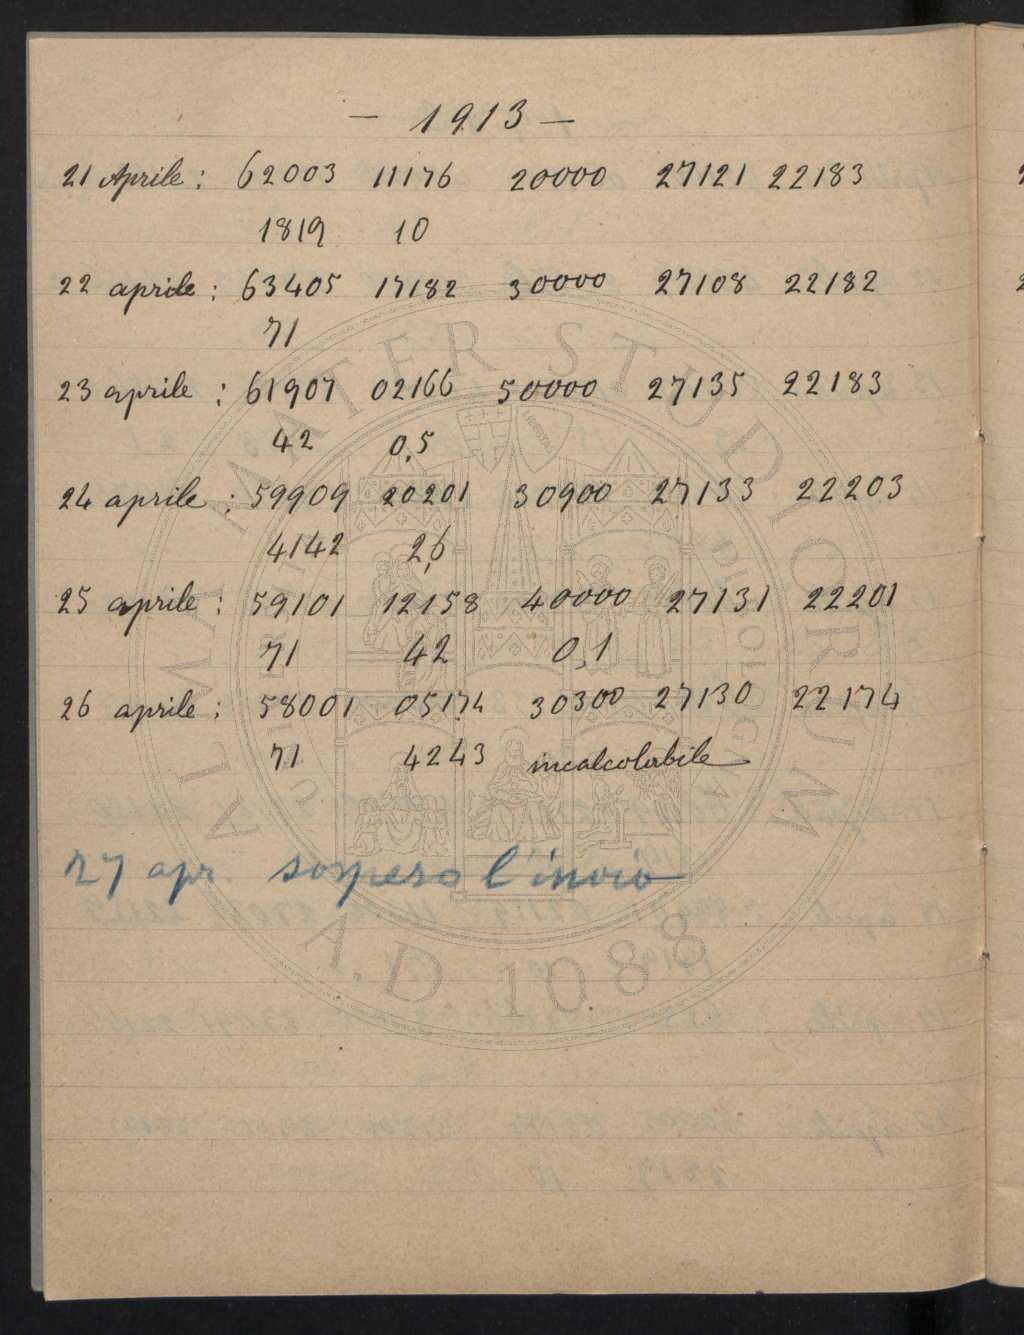 – 1913 –
21 Aprile : 62003 11176 20000 27121 22183
1819 10
22 aprile : 63405 17182 30000 27108 22182
71
23 aprile : 61907 02166 50000 27135 22183
42 0,5
24 aprile : 59909 20201 30900 27133 22203
4142 2,6
25 aprile : 59101 12158 40000 27131 22201
71 42 0,1
26 aprile : 58001 05174 30300 27130 22174
71 4243 incalcolabile
27 apr. sospeso l'invio
ALMA MATER STUDIORUM
A.D. 1088